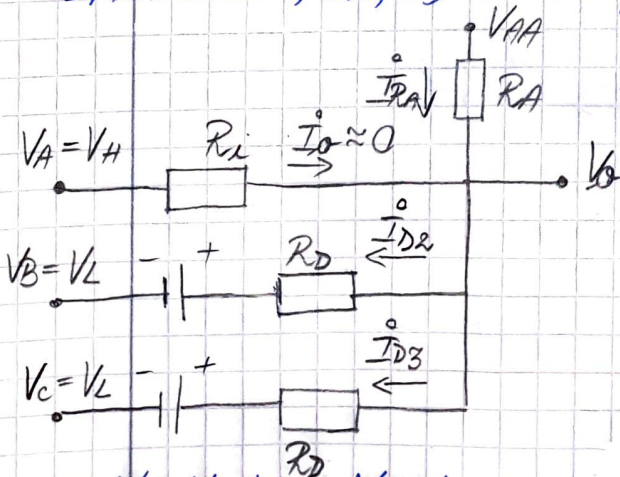 VAA
IRA RA
VA = VH Ri I0 ≈ 0 V0
VB = VL - + RD ID2
VC = VL - + ID3
RD